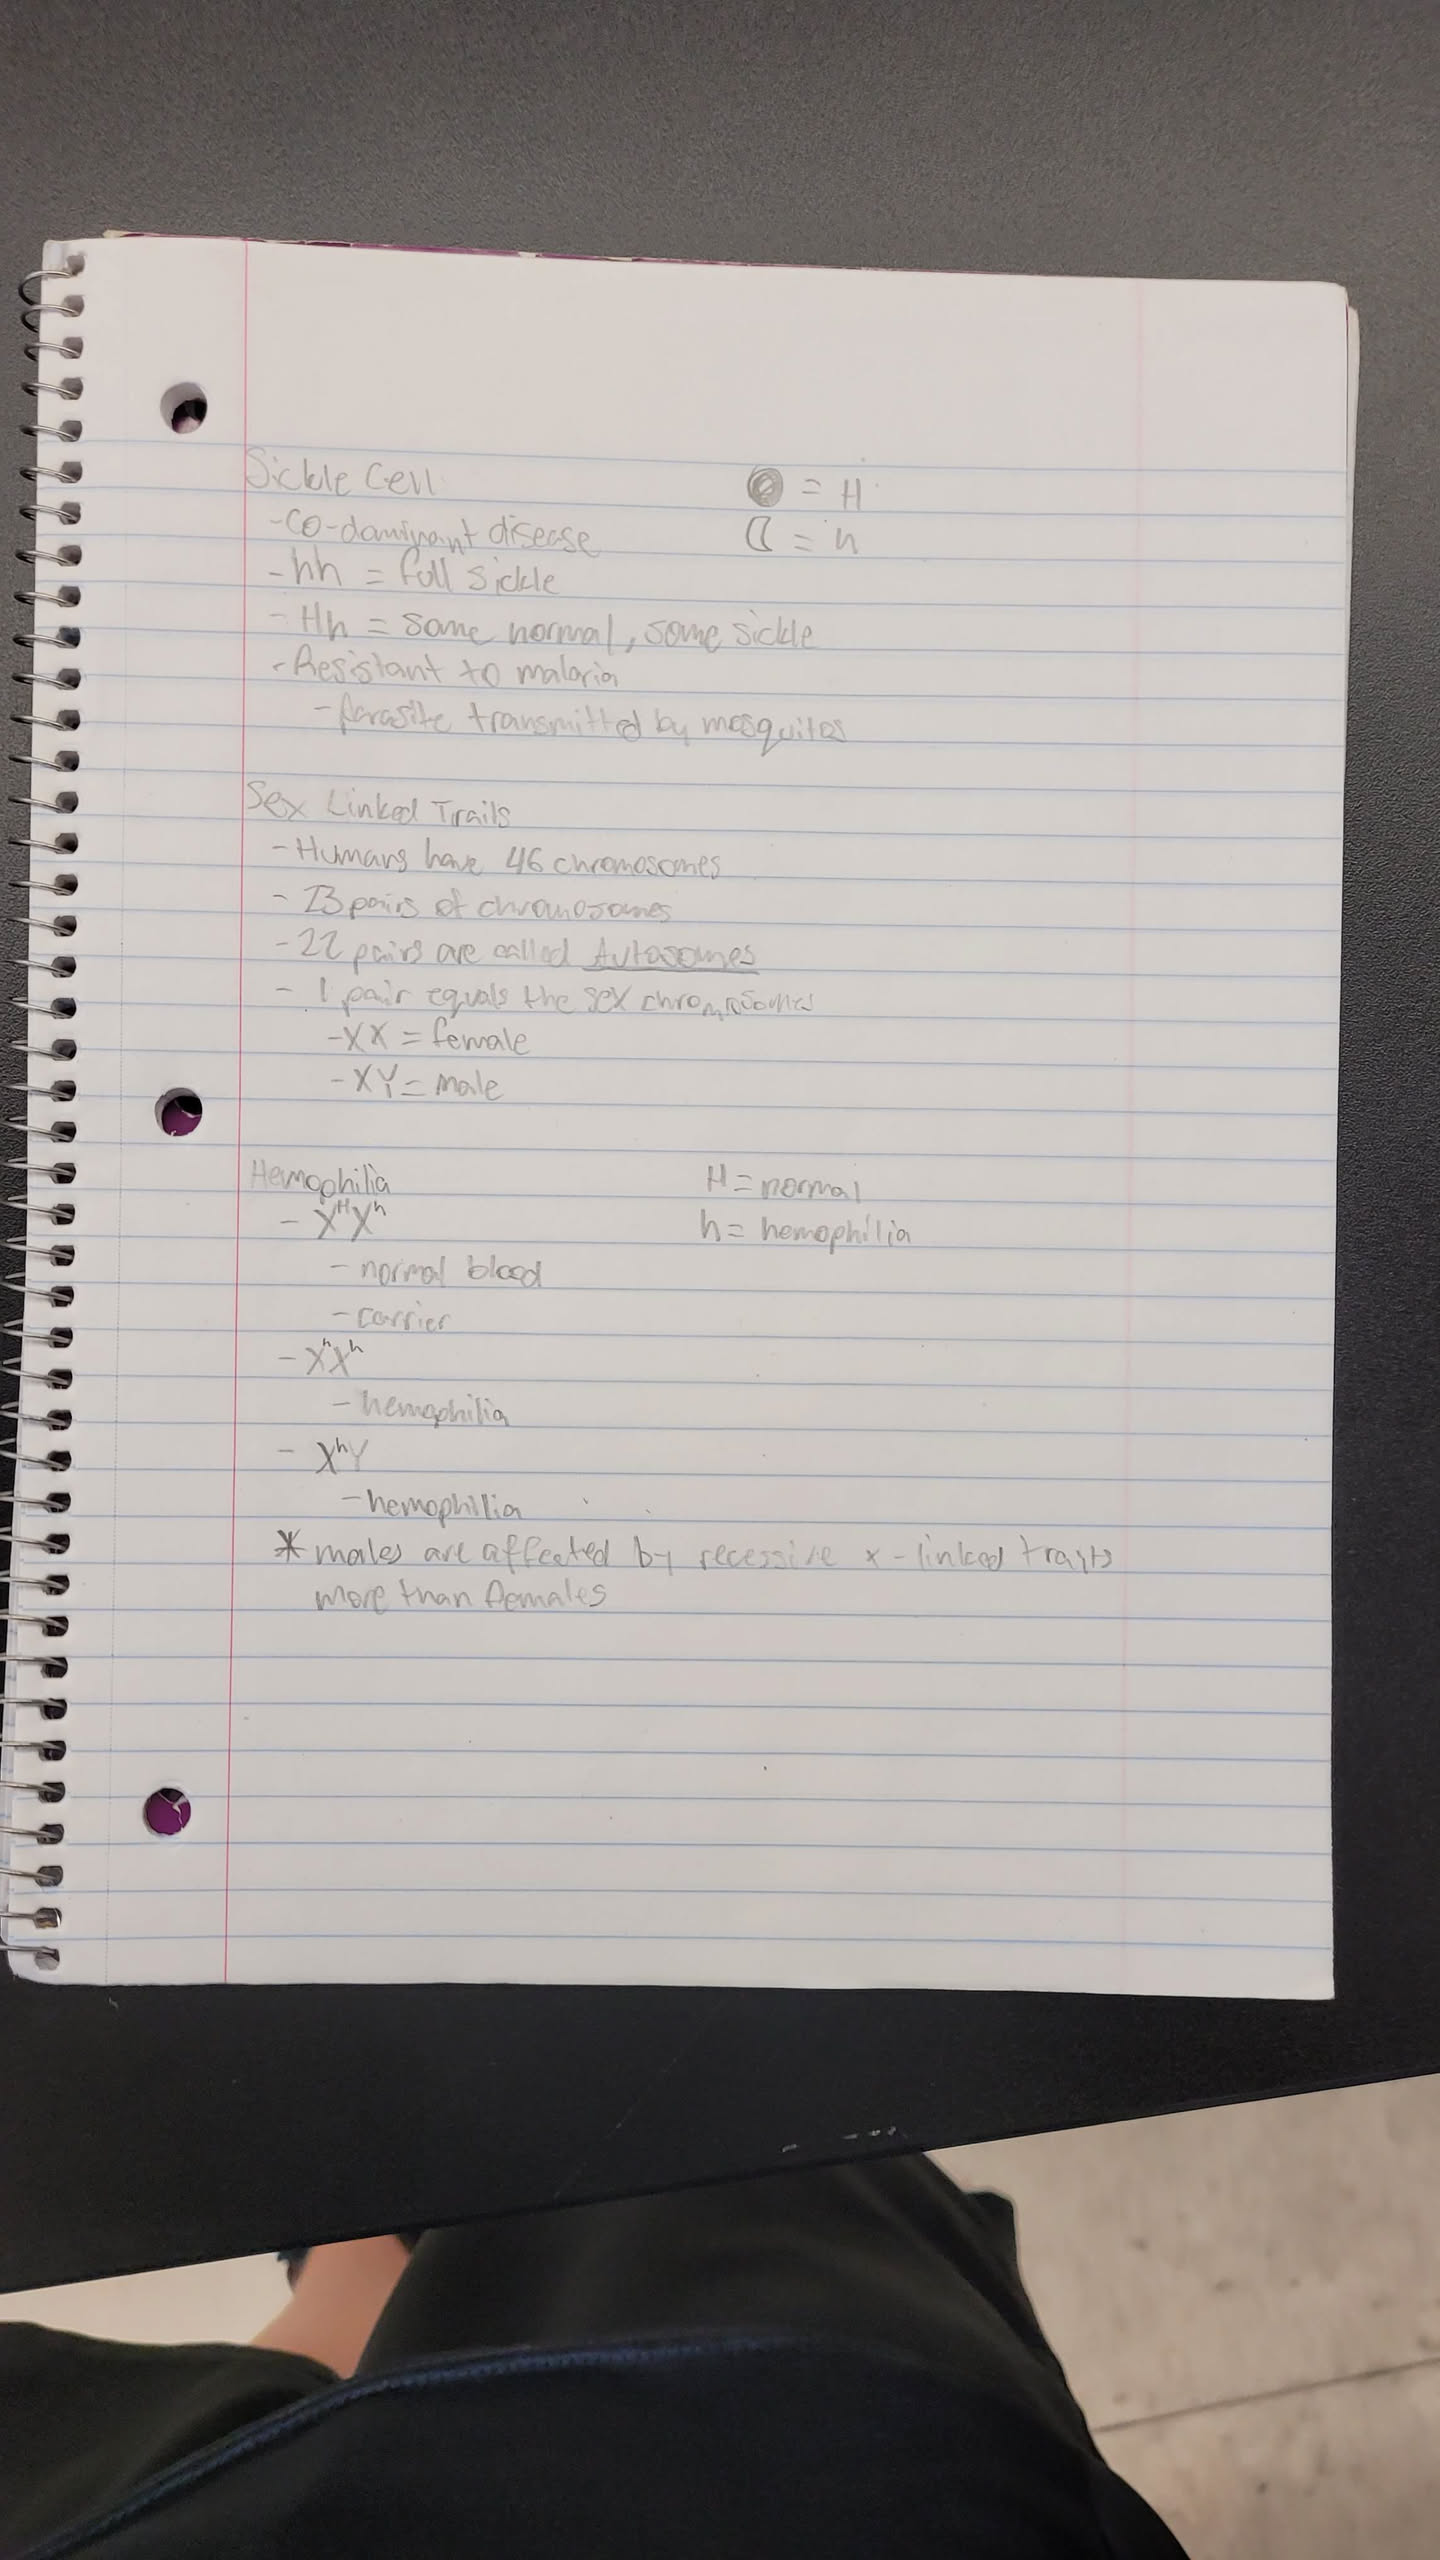 Sickle Cell
= H
- Co-dominant disease
= h
- hh = full sickle
- Hh = some normal, some sickle
- Resistant to malaria
- parasite transmitted by mosquitos
Sex Linked Trails
- Humans have 46 chromosomes
- 23 pairs of chromosomes
- 22 pairs are called Autosomes
- 1 pair equals the sex chromosomes
- XX = female
- XY = male
Hemophilia
H = normal
- XᴴXʰ
h = hemophilia
- normal blood
- carrier
- XʰXʰ
- hemophilia
- XʰY
- hemophilia
* males are affected by recessive x-linked traits
more than females